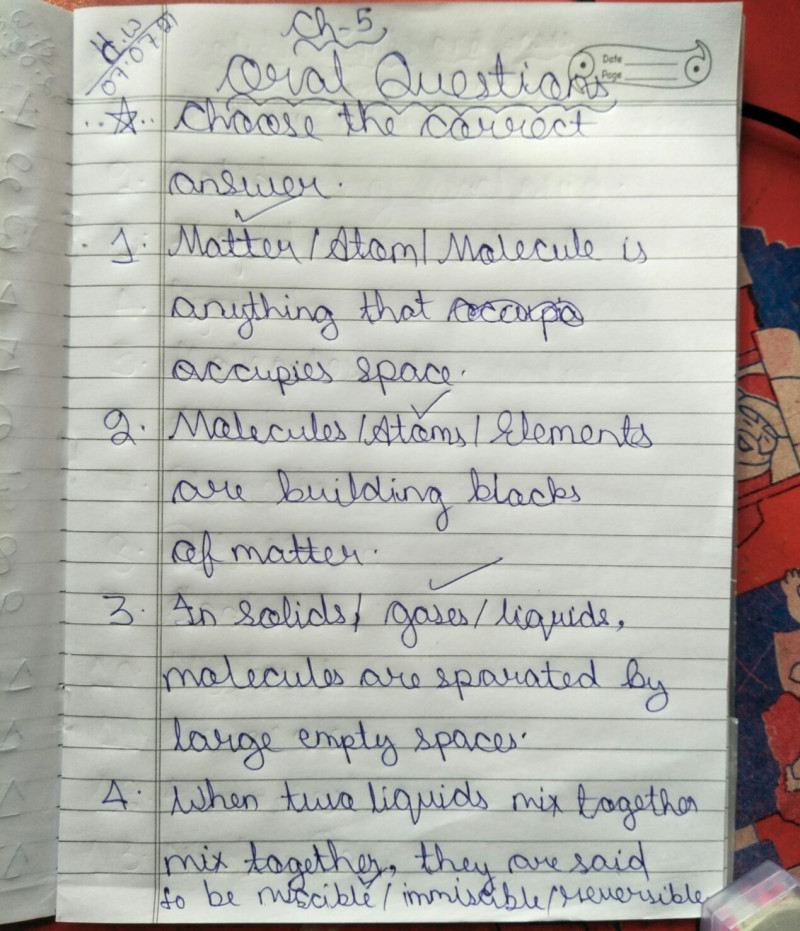 Ch-5
H.W
07.07.21
Oral Questions
Date
Page
Choose the correct
answer.
1. Matter/Atom/Molecule is
anything that
occupies space.
2. Molecules/Atoms/Elements
are building blocks
of matter.
3. In solids/ gases/liquids,
molecules are sparated by
large empty spaces.
4. When two liquids mix together
mix together, they are said
to be miscible/immiscible/